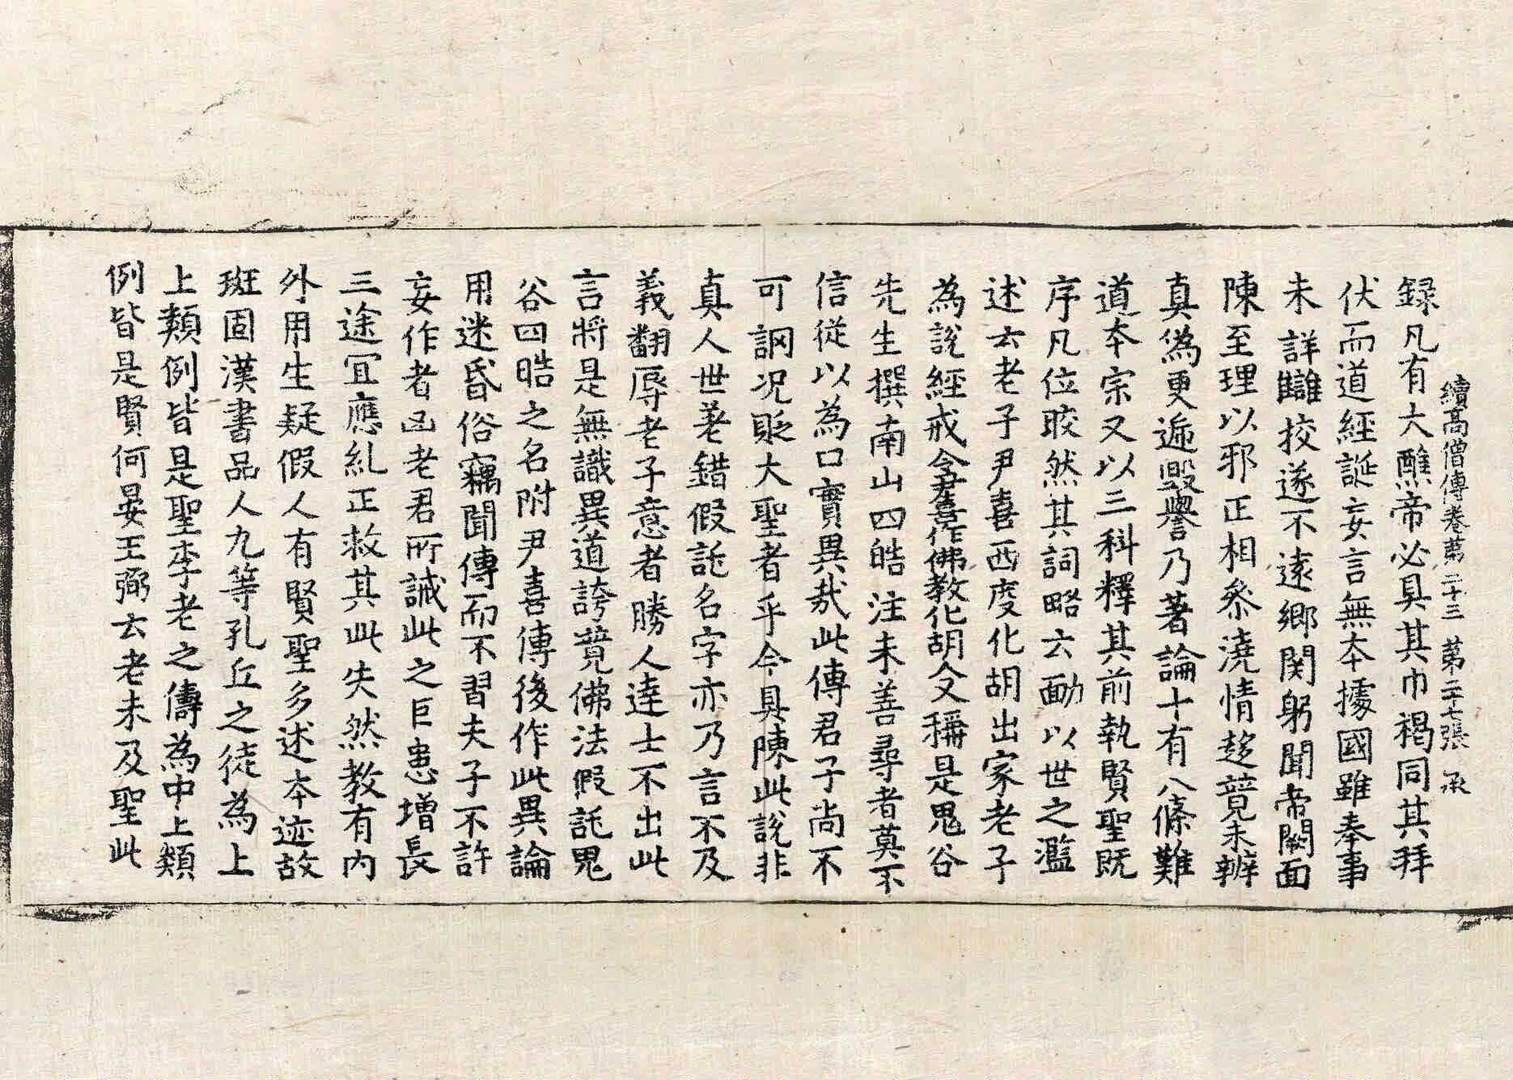 續高僧傳卷苐二十三 苐二十七張 承
録凡有大醮帝必具其巾褐同其拜
伏而道經誕妄言無本據國雖奉事
未詳讎挍遂不遠鄉関躬聞帝闕面
陳至理以邪正相叅澆情趍競未辨
真偽更遞毀譽乃著論十有八條難
道本宗又以三科釋其前執賢聖既
序凡位皎然其詞略云勔以世之濫
述云老子尹喜西度化胡出家老子
為說經戒令尹喜作佛教化胡人又稱是鬼谷
先生撰南山四皓注未善尋者莫不
信從以為口實異哉此傳君子尚不
可誷况貶大聖者乎今具陳此說非
真人世差錯假託名字亦乃言不及
義翻辱老子意者勝人達士不出此
言將是無識異道誇競佛法假託鬼
谷四皓之名附尹喜傳後作此異論
用迷昏俗竊聞傳而不習夫子不許
妄作者凶老君所誡此之巨患增長
三途冝應糺正救其此失然教有內
外用生疑假人有賢聖多述本迹故
班固漢書品人九等孔丘之徒為上
上類例皆是聖李老之儔為中上類
例皆是賢何晏王弼云老未及聖此